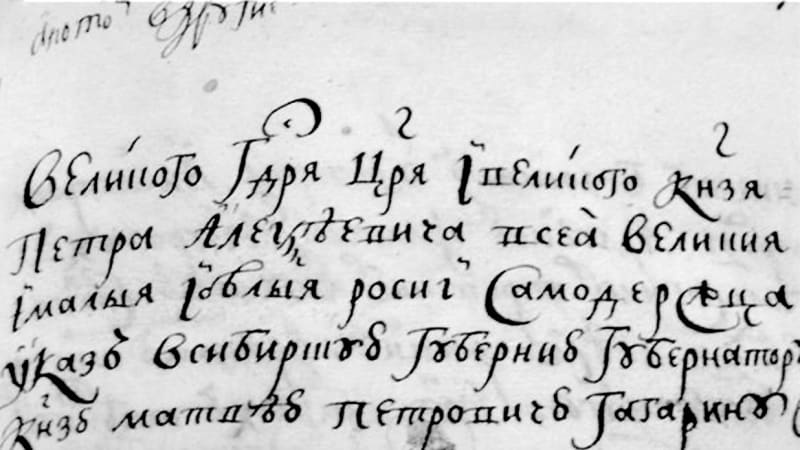 великого гдря цря iвеликого кнзя
петра алеѯѣевича всеа великия
iмалыя iбѣлыя росиi самодержца
указъ всибирскую губернию губернатору
кнзю матвѣю петровичю гагарину